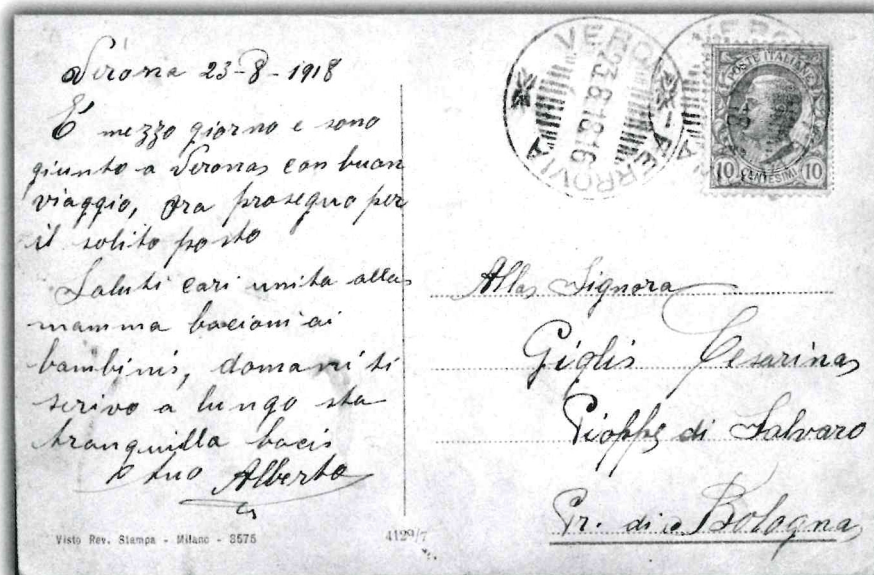 Verona 23-8-1918
È mezzo giorno e sono
giunto a Verona con buon
viaggio, ora proseguo per
il solito posto
Saluti cari unita alla
mamma bacioni ai
bambini, domani ti
scrivo a lungo sta
tranquilla baci
tuo Alberto
Visto Rev. Stampa - Milano - 3575
4129/7
VERONA
FERROVIA
23.8.18.16
POSTE ITALIANE
10 CENTESIMI 10
Alla Signora
Gigli Cesarina
Pioppe di Salvaro
Pr. di Bologna